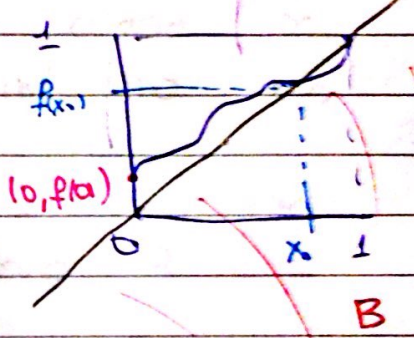 1
f(x₀)
(0, f(0))
0 x₀ 1
B